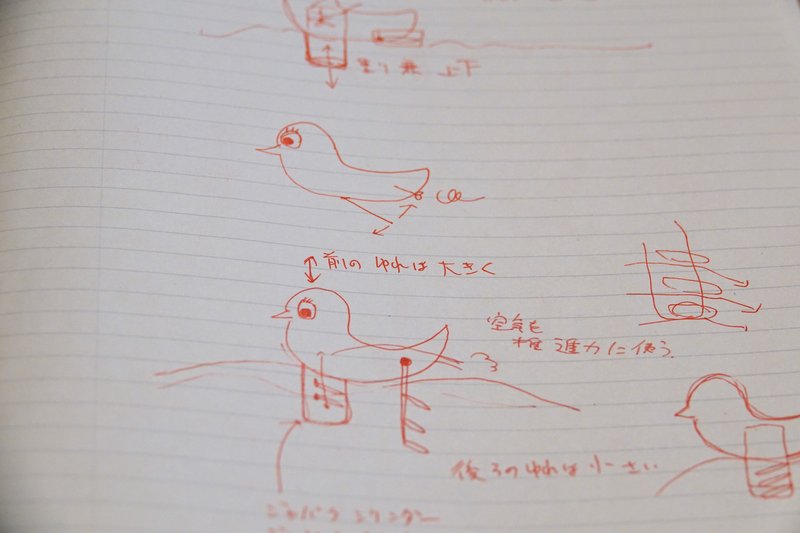 上下
前のゆれは大きく
空気を
推進力に使う
後ろのゆれは小さい
ジャバラシリンダー